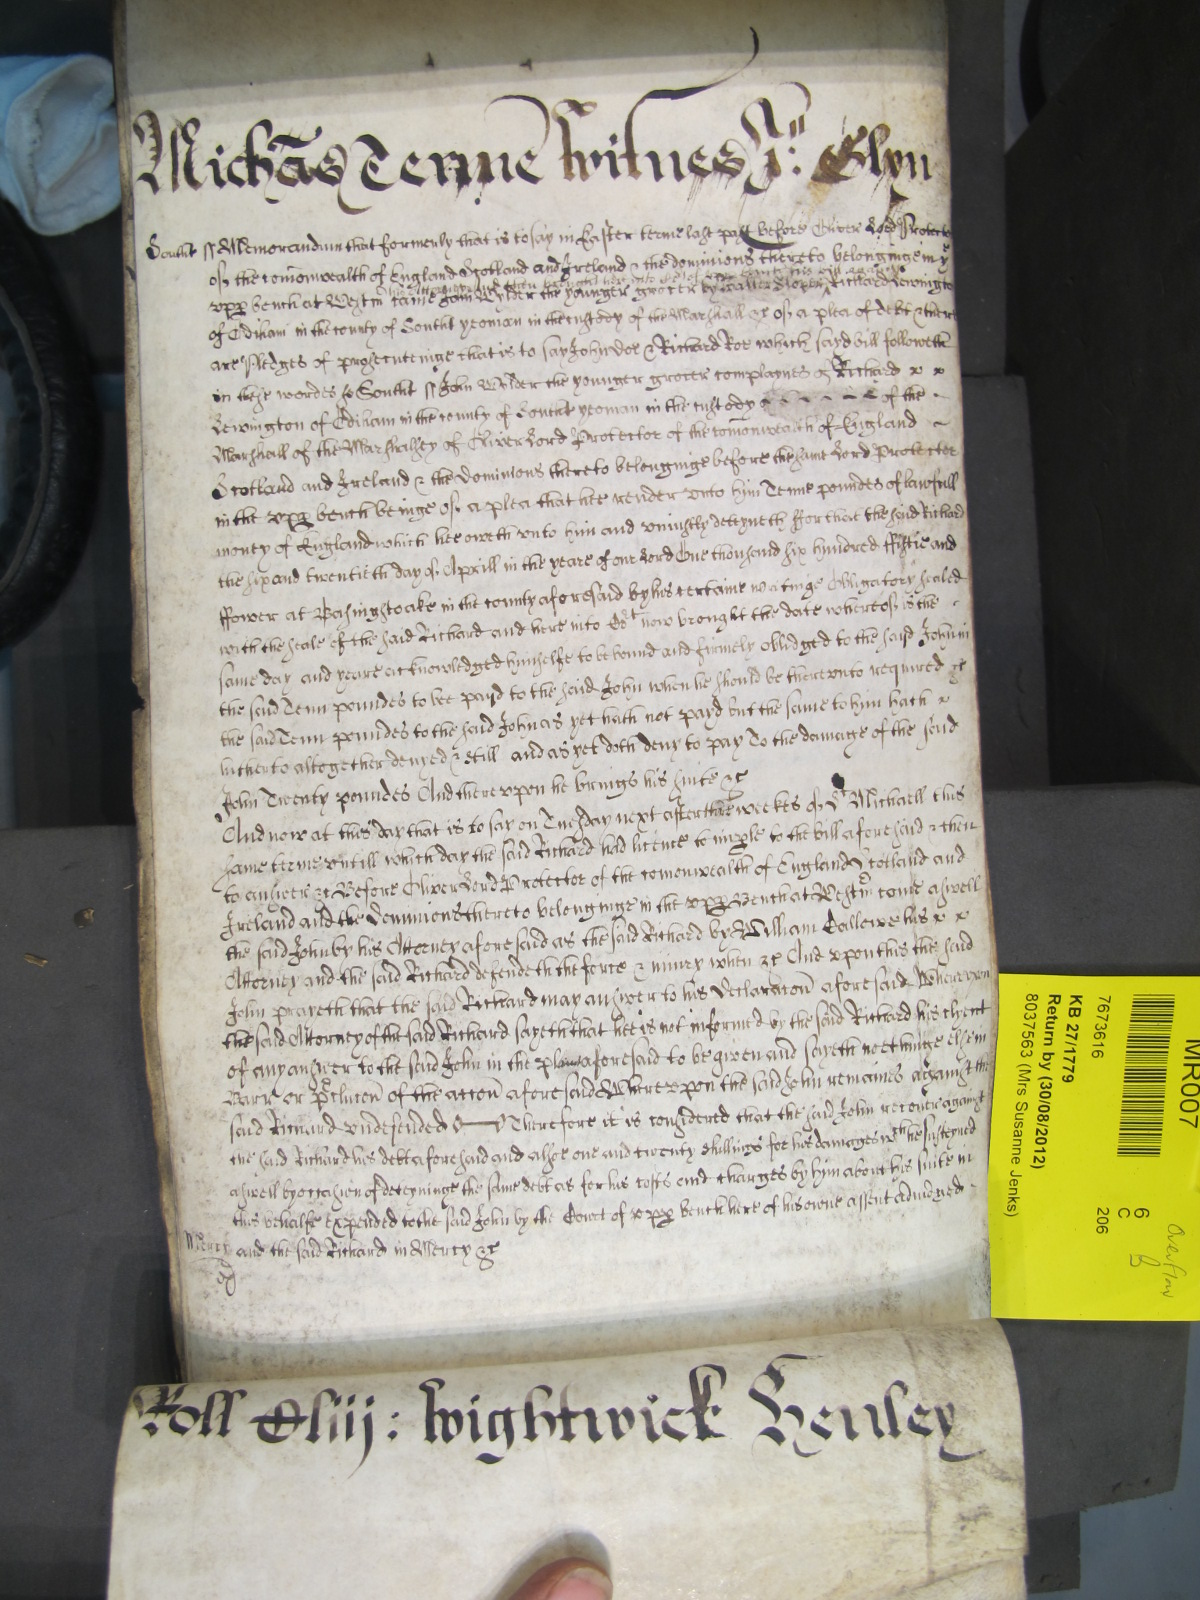 Mich'as Terme Witnes Jo: Glyn
Southt ss Memorandum that formerly that is to say in Easter terme last past before Oliver Lord Protector
of the comonwealth of England Scotland and Ireland & the dominions thereto belonginge in ye
upp bench at Westm came John Wylder the younger grocer by Richard Lewington
of Odiham in the county of Southt yeoman in the custody of the Marshall &c of a plea of debt & there
are Pledges of prosecuteinge that is to say John Doe & Richard Roe which sayd bill followeth
in these wordes ss Southt ss John Wylder the younger grocer complaynes of Richard x x
Lewington of Odiham in the county of Southt yeoman in the custody of the
Marshall of the Marshalsey of Oliver Lord Protector of the comonwealth of England
Scotland and Ireland & the Dominions thereto belonginge before the same Lord Protector
in the upp bench beinge of a plea that hee render unto him Tenne poundes of lawfull
money of England which hee oweth unto him and uniustly deteyneth ffor that the said Richard
the six and twentieth day of Aprill in the yeare of our Lord One thousand six hundred ffiftie and
ffower at Basingstoake in the county aforesaid by his certaine writinge Obligatory sealed
with the seale of the said Richard and here into Co:rt now brought the date whereof is the
same day and yeare acknowledged himselfe to be bound and firmely obliged to the said John in
the said Tenn poundes to bee payd to the said John when he should be thereunto required &c
the said Tenn poundes to the said John as yet hath not payd but the same to him hath x
hitherto altogether denyed & still and as yet doth deny to pay To the damage of the said
John Twenty poundes And thereupon he brings his suite &c
And now at this day that is to say on Tuesday next after three weekes of St Michaell this
same terme untill which day the said Richard had licence to imple to the bill aforesaid & then
to answer &c Before Oliver Lord Protector of the comonwealth of England Scotland and
Ireland and the Dominions thereto belonginge in the upp Bench at Westm come aswell
the said John by his Attorney aforesaid as the said Richard by William Galloway his x x
Attorney and the said Richard defendeth the force & iniury when &c And upon this the said
John prayeth that the said Richard may answer to his declaracon aforesaid Whereupon
the said Attorney of the said Richard sayeth that hee is not informed by the said Richard his clyent
of any answer to the said John in the plaint aforesaid to be given and sayeth nothinge else in
Barr or p'clucon of the accon aforesaid Whereupon the said John remaines against the
said Richard undefended Therefore it is considered that the said John recover against
the said Richard his debt aforesaid and alsoe one and twenty shillings for his damages wch he susteyned
aswell by occasion of deteyninge the same debt as for his costs and charges by him about his suite in
this behalfe expended to the said John by the Court of upp bench here of his owne assent adiudged
Mercy and the said Richard in Mercy &c
Roll Cliiij: Wightwick Henley
MR007
7673616
KB 27/1779
Return by (30/08/2012)
8037563 (Mrs Susanne Jenks)
6
C
206
Overflow